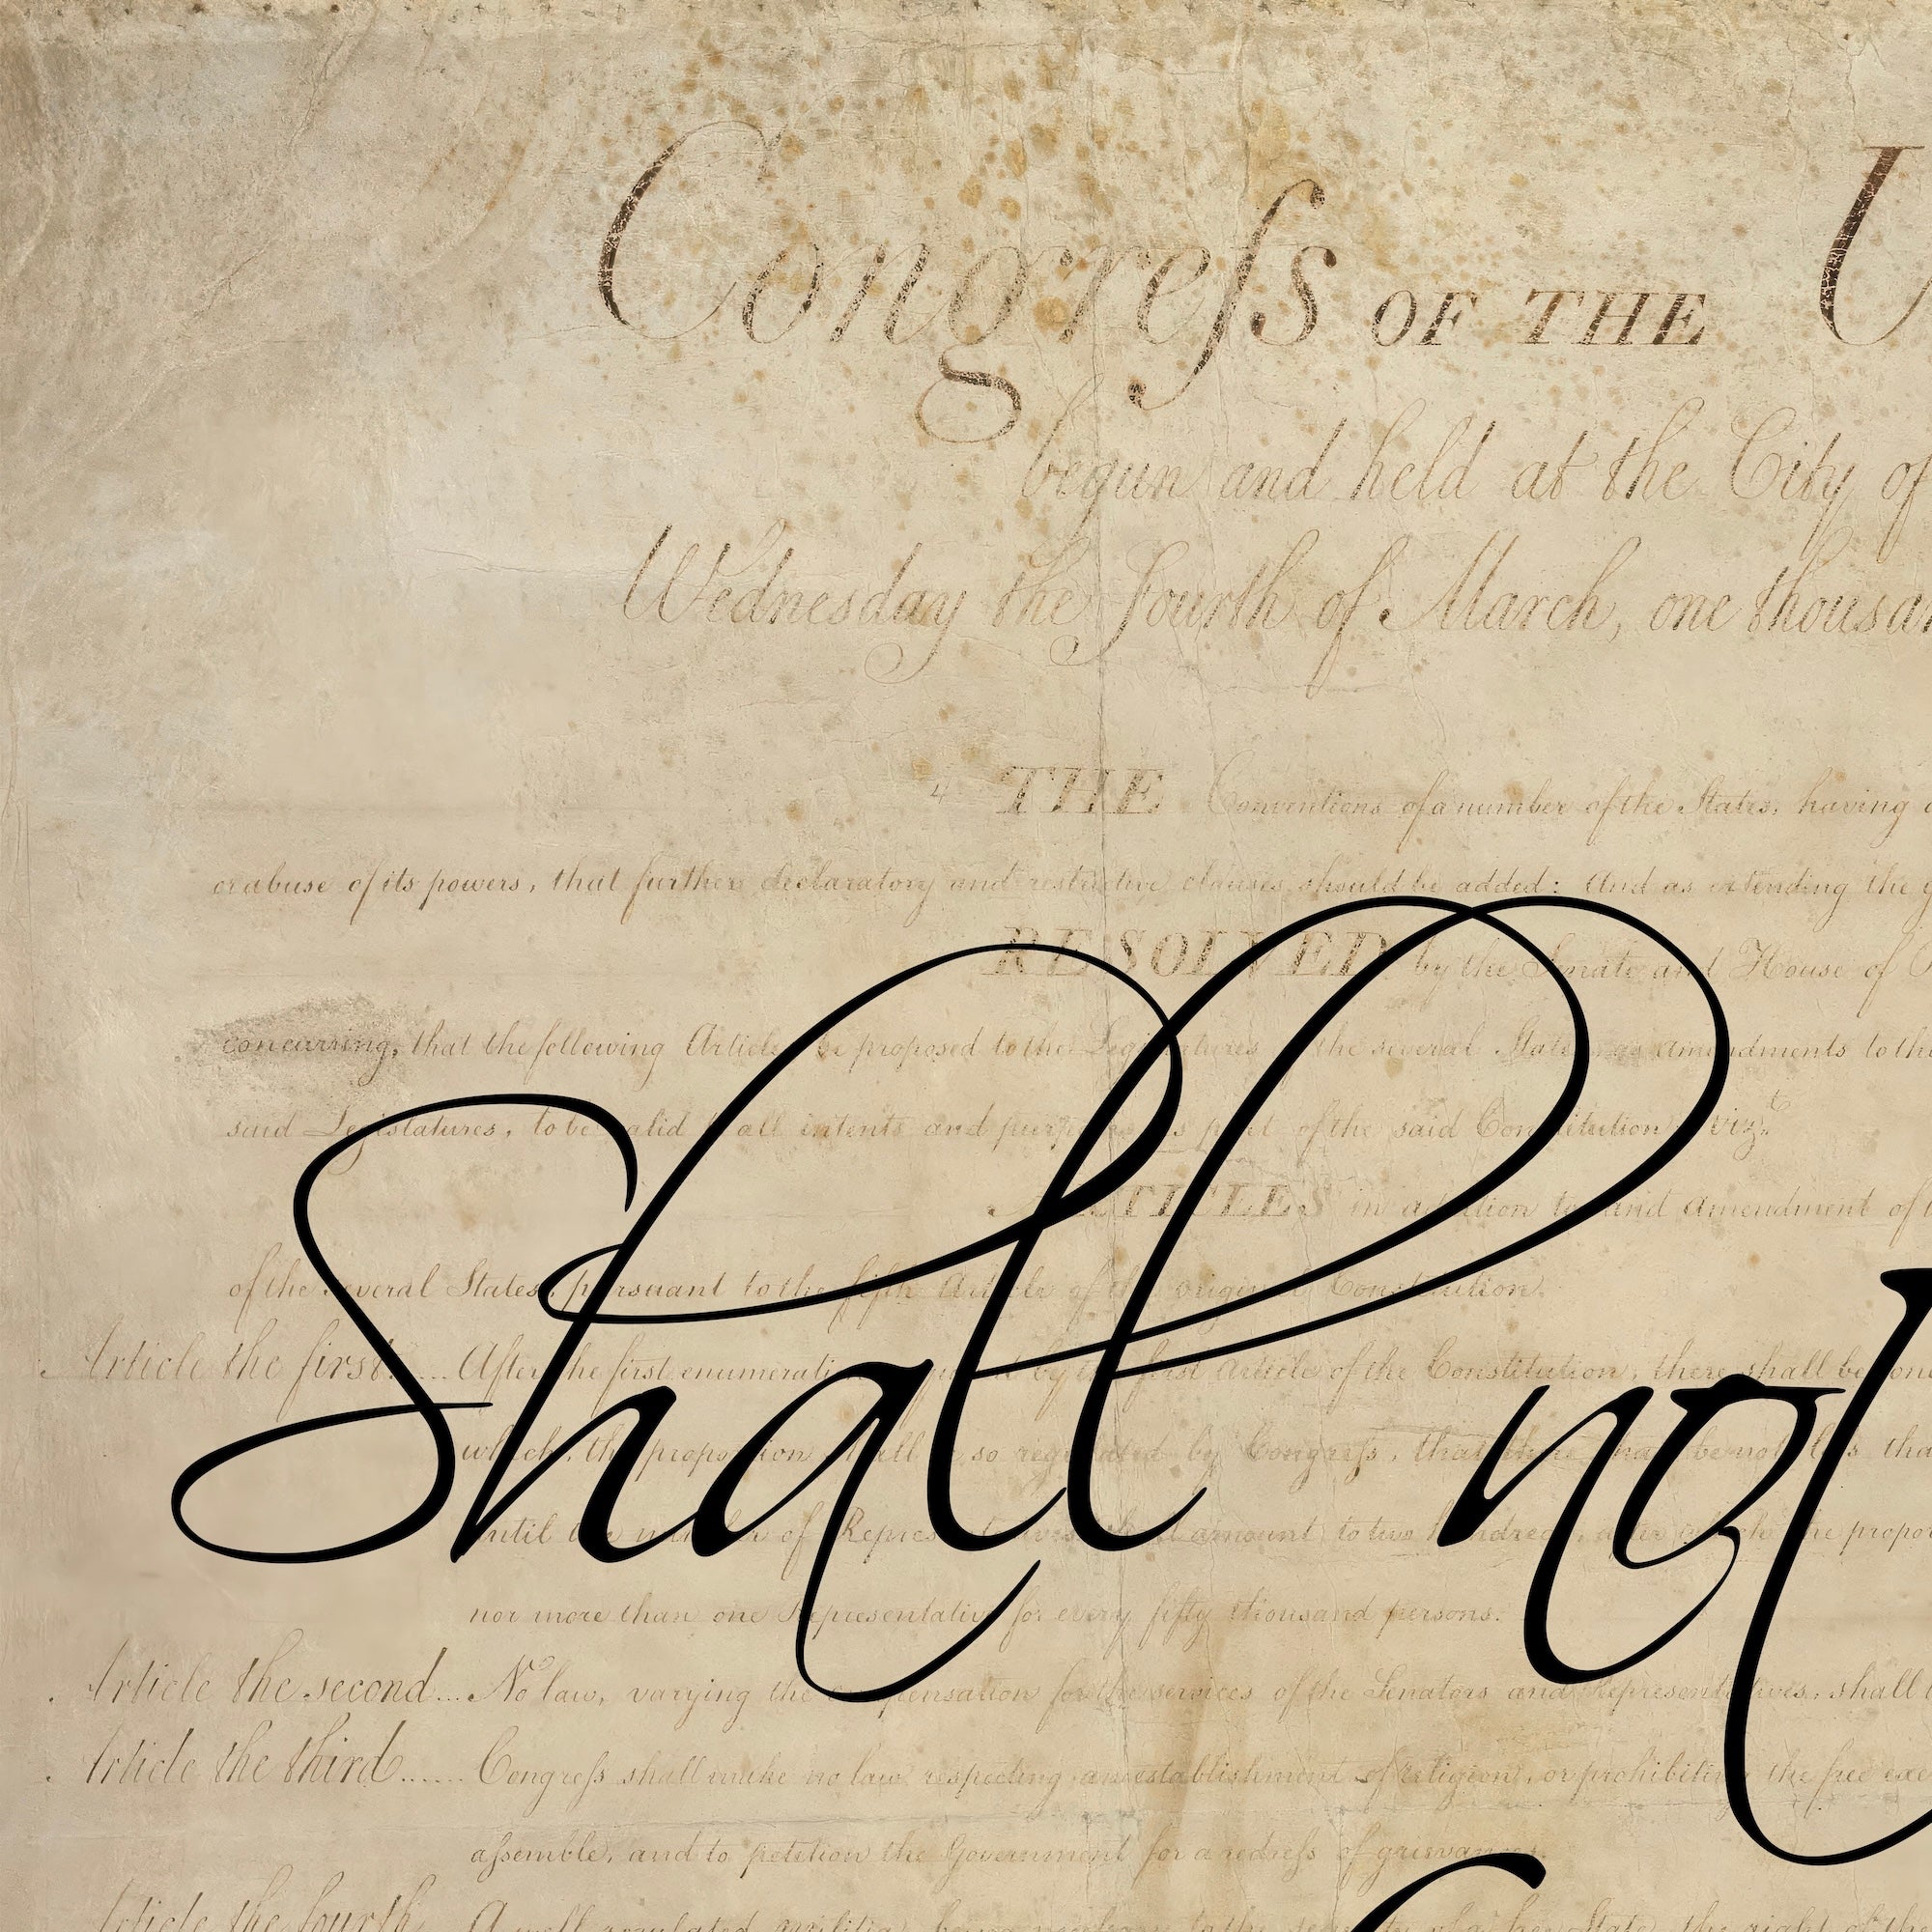 Congreſs OF THE U
begun and held at the City of
Wednesday the fourth of March, one thousan
THE Conventions of a number of the States, having
or abuse of its powers, that further declaratory and restrictive clauses should be added: And as extending the
RESOLVED by the Senate and House of
concurring, that the following Article be proposed to the Legislatures the several States as amendments to the
said Legislatures, to be valid all intents and purposes as part of the said Constitution viz.t
ARTICLES in addition to and Amendment of
of the several States, pursuant to the fifth Article of the original Constitution.
Article the first..... After the first enumeration required by the first Article of the Constitution, there shall be one
Shall not
which, the proportion shall be so regulated by Congreſs, that there shall be not less tha
until the number of Representatives shall amount to two hundred, after which the propor
nor more than one Representative for every fifty thousand persons.
Article the second... No law, varying the compensation for the services of the Senators and Representatives, shall
Article the third...... Congreſs shall make no law respecting an establishment of religion, or prohibiting the free exe
aſsemble, and to petition the Government for a redreſs of grievances.
Article the fourth A well regulated militia, being necessary to the security of a free State, the right of the